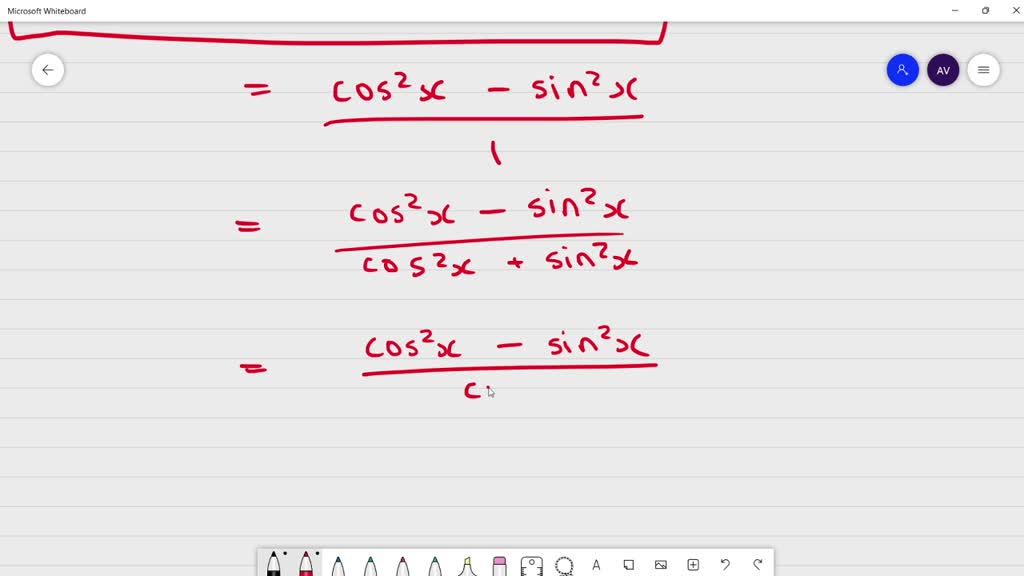 Microsoft Whiteboard
AV
= cos²x - sin²x
1
= cos²x - sin²x
cos²x + sin²x
= cos²x - sin²x
c
A